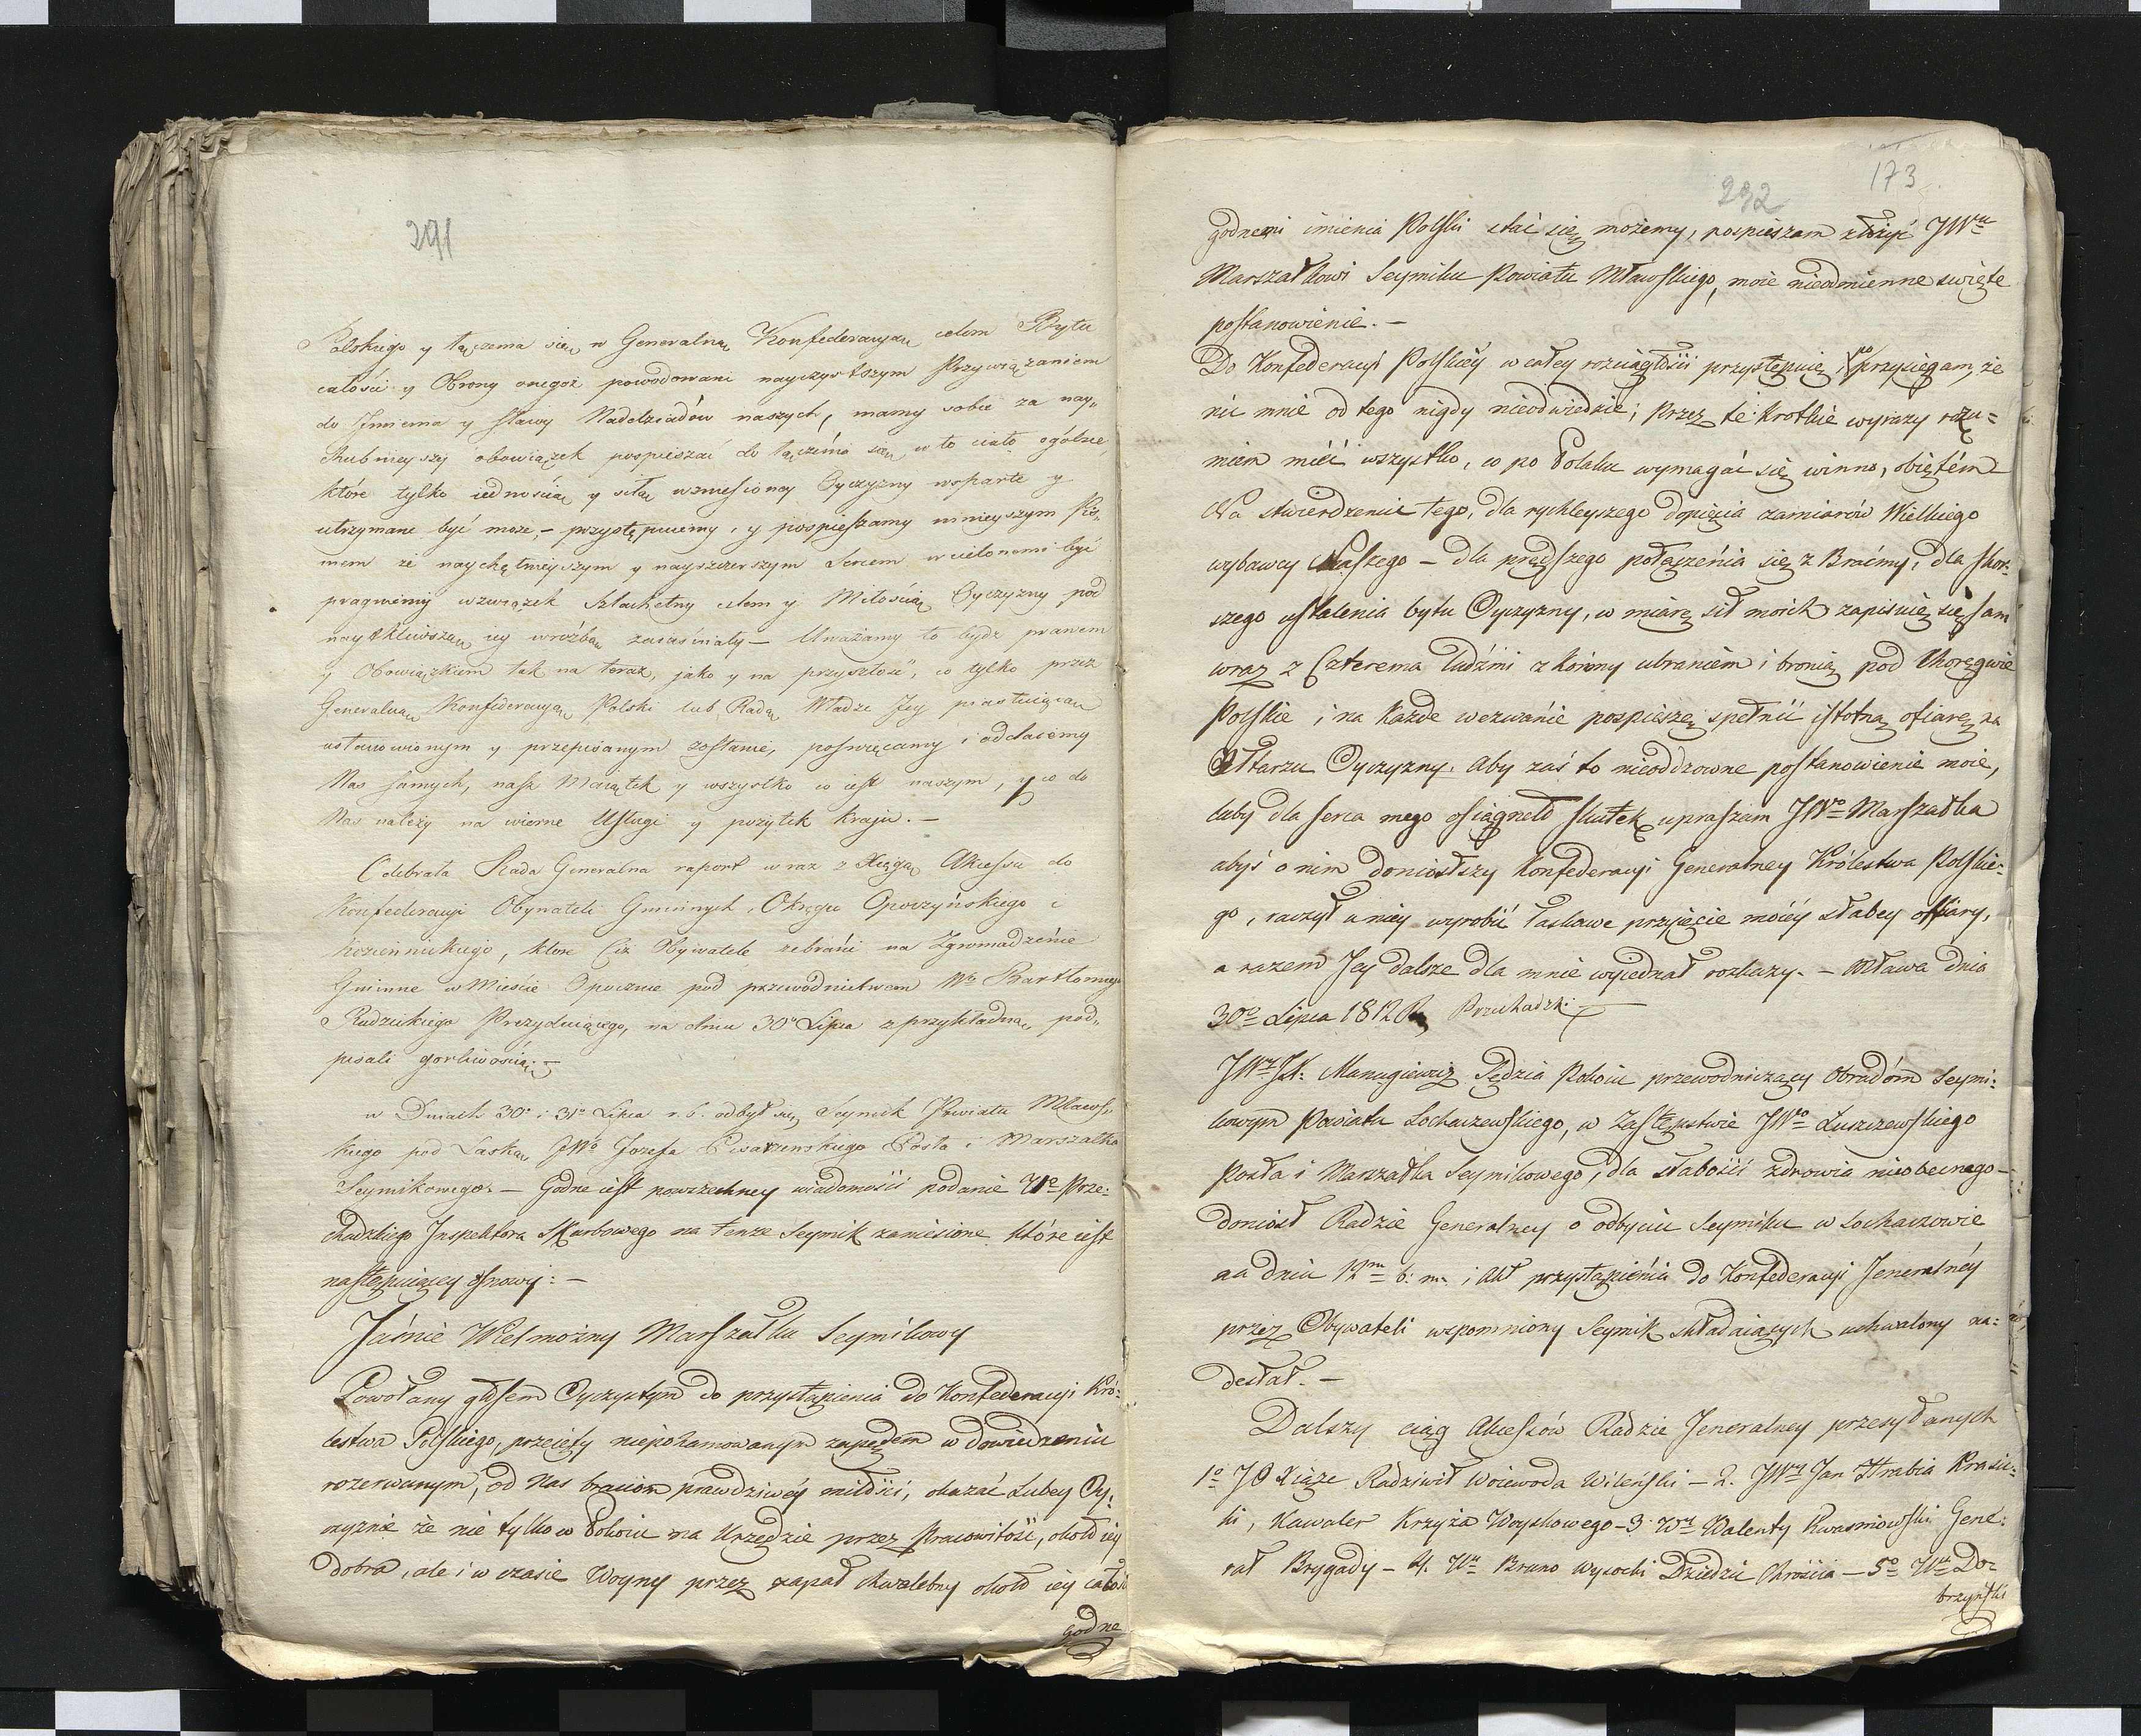 291
Polskiego y łączenia się w Generalną Konfederacyą celem Bytu
całości y Obrony onegoż powodowani nayczystszym Przywiązaniem
do Imienia y sławy Naddziadów naszych, mamy sobie za nay„
chubnieyszy obowiązek pospieszać do łączenia się w to ciało ogólne,
które tylko iednością y siłą wzniesioney Oyczyzny wsparte y
utrzymane być może, – przystępuiemy, y pospieszamy ninieyszym Pis„
mem że naychętnieyszym y nayszczerszym Sercem wcielonemi być
pragniemy w związek Szlachetny celem y Miłością Oyczyzny pod
nay iey wróżbą – Uważamy to bydź prawem
y Obowiązkiem tak na teraz, jako y na przyszłość, co tylko przez
Generalną Konfederacyą Polski lub Radę Władzę Jey piastuiącą
ustanowionym y przepisanym zostanie, poswięcamy i oddaiemy
Nas samych, nasz Maiątek y wszystko co iest naszym, y co do
Nas należy na wierne Usługi y pożytek Kraju. –
Odebrała Rada Generalna raport wraz z Xięgą Akcessu do
Konfederacyi Obywateli Gminnych, Okręgu Opoczyńskiego i
Koziennickiego, które Ciż Obywatele zebrani na Zgromadzenie
Gminne w Mieście Opocznie pod przewodnictwem Wo Bartłomieja
Rudzickiego Prezyduiącego, na dniu 30o Lipca z przykładną pod„
pisali gorliwością. –
w Dniach 30o i 31o Lipca r. b. odbył się Seymik Powiatu Mławs„
kiego pod Laską JWo Jozefa Posła i Marszałka
Seymikowego. – Godne iest powszechney wiadomości podanie Wo Prze=
chadzkiego Inspektora Skarbowego na tenże Seymik zaniesione które iest
następuiącey osnowy: –
Jaśnie Wielmożny Marszałku Seymikowy
Powołany głosem Oyczystym do przystąpienia do Konfederacyi Kró=
lestwa Polskiego, przeięty niepohamowanym zapędem w dowiedzeniu
rozerwanym, od Nas braciom prawdziwéy miłości, okazać Lubey Oy=
czyznie że nie tylko w Pokoiu na Urzędzie przez Pracowitość, około iey
dobra, ale i w czasie Woyny przez zapał chwalebny około iey całości
godne
173
292
godnemi imienia Polski stać się możemy, pospieszam złożyć JWu
Marszałkowi Seymiku Powiatu Mławskiego, moie nieodmienne święte
postanowienie. –
Do Konfederacyi Polskiéy w całey rozciągłości przystępuię, i poprzysięgam, że
nic mnie od tego nigdy nieodwiedzie; przez te krotkie wyrazy rozu=
miem mieć wszystko, co po Polaku wymagać się winno, obiętém
Na stwierdzenie tego, dla rychleyszego dopięcia zamiarów Wielkiego
wybawcy Naszego – dla prędszego połączenia się z Braćmy, dla skor=
szego ustalenia bytu Oyczyzny, w miarę sił moich zapisuię się sam
wraz z Czterema ludźmi z Konny ubraniem i bronią pod Chorągwie
Polskie i na każde wezwanie pospieszę spełnić istotną ofiarę na
Ołtarzu Oyczyzny. Aby zaś to nieodzowne postanowienie moie,
luby dla serca mego osiągneło skutek upraszam JWo Marszałka
abyś o nim doniosłszy Konfederacyi Generalney Królestwa Polskie=
go, raczył u niey wyrobić łaskawe przyięcie moiéy słabey offiary,
a razem Jey dalsze dla mnie wyiednał rozkazy. – Mława dnia
30o Lipca 1812 R. Przechadzki
JWny JK: Manugiewicz Sędzia Pokoiu przewodniczący Obradóm Seymi=
kowym Powiatu Sochaczewskiego, w Zastępstwie JWo Łuszczewskiego
Posła i Marszałka Seymikowego, dla słabości zdrowia nieobecnego –
doniosł Radzie Generalney o odbyciu Seymiku w Sochaczewie
na dniu 12m b. m. i Akt przystąpienia do Konfederacyi Jeneralnéy
przez Obywateli wspomniony Seymik składaiących uchwalony na=
desłał. –
Dalszy ciąg Akcessów Radzie Jeneralney przesyłanych
1o JO Xiąże Radziwiłł Woiewoda Wileński – 2. JWny Jan Hrabia Krasic=
ki, Kawaler Krzyża Woyskowego – 3. Wny Walenty Kwasniowski Gene=
rał Brygady – 4. Wny Bruno Wysocki Dziedzic – 5o Wny Do=
brzyński